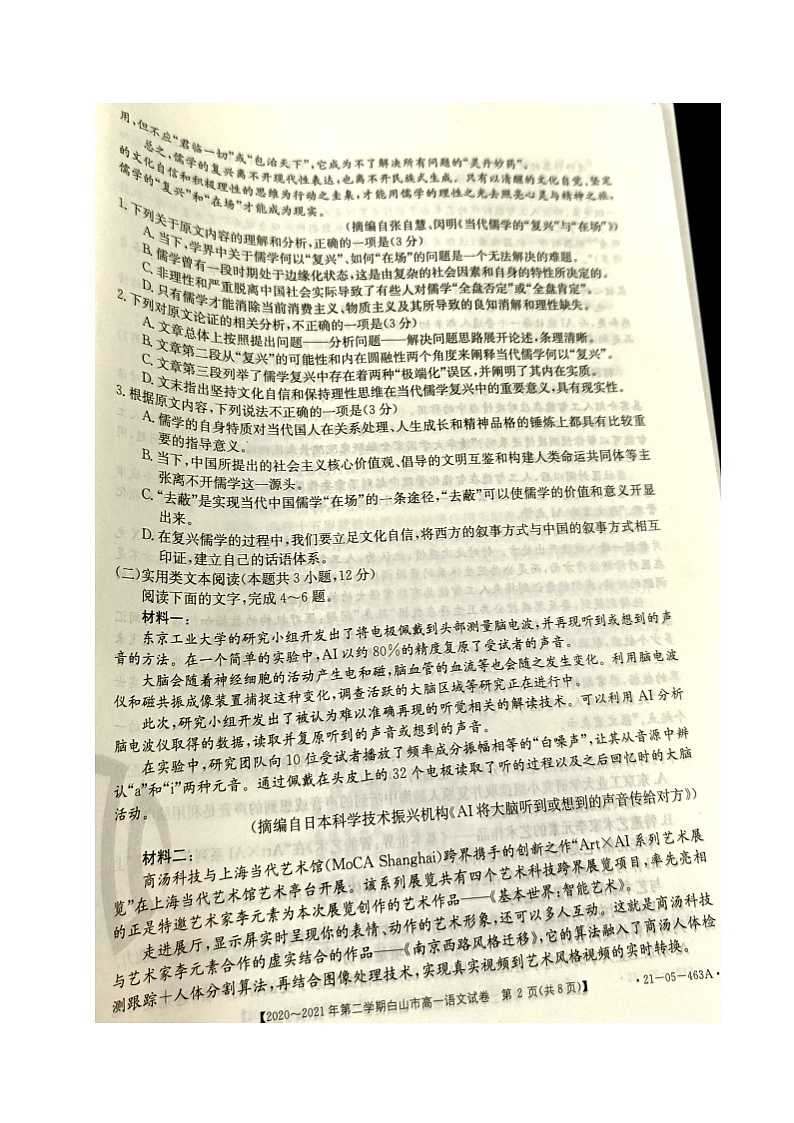 用,但不应“君临一切”或“包治天下”,它成为不了解决所有问题的“灵丹妙药”。
总之,儒学的复兴离不开现代性表达,也离不开民族式生成。只有以清醒的文化自觉、坚定
的文化自信和积极理性的思维为行动之圭臬,才能用儒学的理性之光去照亮心灵与精神之旅,
儒学的“复兴”和“在场”才能成为现实。
(摘编自张自慧、闵明《当代儒学的“复兴”与“在场”》)
1. 下列关于原文内容的理解和分析,正确的一项是(3分)
A. 当下,学界中关于儒学何以“复兴”、如何“在场”的问题是一个无法解决的难题。
B. 儒学曾有一段时期处于边缘化状态,这是由复杂的社会因素和自身的特性所决定的。
C. 非理性和严重脱离中国社会实际导致了有些人对儒学“全盘否定”或“全盘肯定”。
D. 只有儒学才能消除当前消费主义、物质主义及其所导致的良知消解和理性缺失。
2. 下列对原文论证的相关分析,不正确的一项是(3分)
A. 文章总体上按照提出问题——分析问题——解决问题思路展开论述,条理清晰。
B. 文章第二段从“复兴”的可能性和内在圆融性两个角度来阐释当代儒学何以“复兴”。
C. 文章第三段列举了儒学复兴中存在着两种“极端化”误区,并阐明了其内在实质。
D. 文末指出坚持文化自信和保持理性思维在当代儒学复兴中的重要意义,具有现实性。
3. 根据原文内容,下列说法不正确的一项是(3分)
A. 儒学的自身特质对当代国人在关系处理、人生成长和精神品格的锤炼上都具有比较重
要的指导意义。
B. 当下,中国所提出的社会主义核心价值观、倡导的文明互鉴和构建人类命运共同体等主
张离不开儒学这一源头。
C. “去蔽”是实现当代中国儒学“在场”的一条途径,“去蔽”可以使儒学的价值和意义开显
出来。
D. 在复兴儒学的过程中,我们要立足文化自信,将西方的叙事方式与中国的叙事方式相互
印证,建立自己的话语体系。
(二)实用类文本阅读(本题共3小题,12分)
阅读下面的文字,完成4~6题。
材料一:
东京工业大学的研究小组开发出了将电极佩戴到头部测量脑电波,并再现听到或想到的声
音的方法。在一个简单的实验中,AI以约80%的精度复原了受试者的声音。
大脑会随着神经细胞的活动产生电和磁,脑血管的血流等也会随之发生变化。利用脑电波
仪和磁共振成像装置捕捉这种变化,调查活跃的大脑区域等研究正在进行中。
此次,研究小组开发出了被认为难以准确再现的听觉相关的解读技术。可以利用AI分析
脑电波仪取得的数据,读取并复原听到的声音或想到的声音。
在实验中,研究团队向10位受试者播放了频率成分振幅相等的“白噪声”,让其从音源中辨
认“a”和“i”两种元音。通过佩戴在头皮上的32个电极读取了听的过程以及之后回忆时的大脑
活动。
(摘编自日本科学技术振兴机构《AI将大脑听到或想到的声音传给对方》)
材料二:
商汤科技与上海当代艺术馆(MoCA Shanghai)跨界携手的创新之作“Art×AI系列艺术展
览”在上海当代艺术馆艺术亭台开展。该系列展览共有四个艺术科技跨界展览项目,率先亮相
的正是特邀艺术家李元素为本次展览创作的艺术作品——《基本世界:智能艺术》。
走进展厅,显示屏实时呈现你的表情、动作的艺术形象,还可以多人互动。这就是商汤科技
与艺术家李元素合作的虚实结合的作品——《南京西路风格迁移》,它的算法融入了商汤人体检
测跟踪+人体分割算法,再结合图像处理技术,实现真实视频到艺术风格视频的实时转换。
【2020~2021年第二学期白山市高一语文试卷 第2页(共8页)】
·21-05-463A·